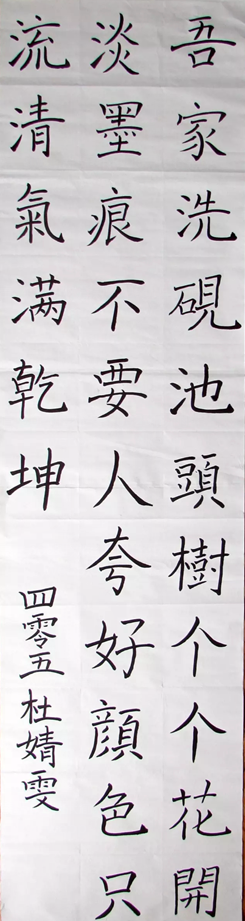 吾家洗硯池頭樹个个花開
淡墨痕不要人夸好顔色只
流清氣满乾坤
四零五杜婧雯